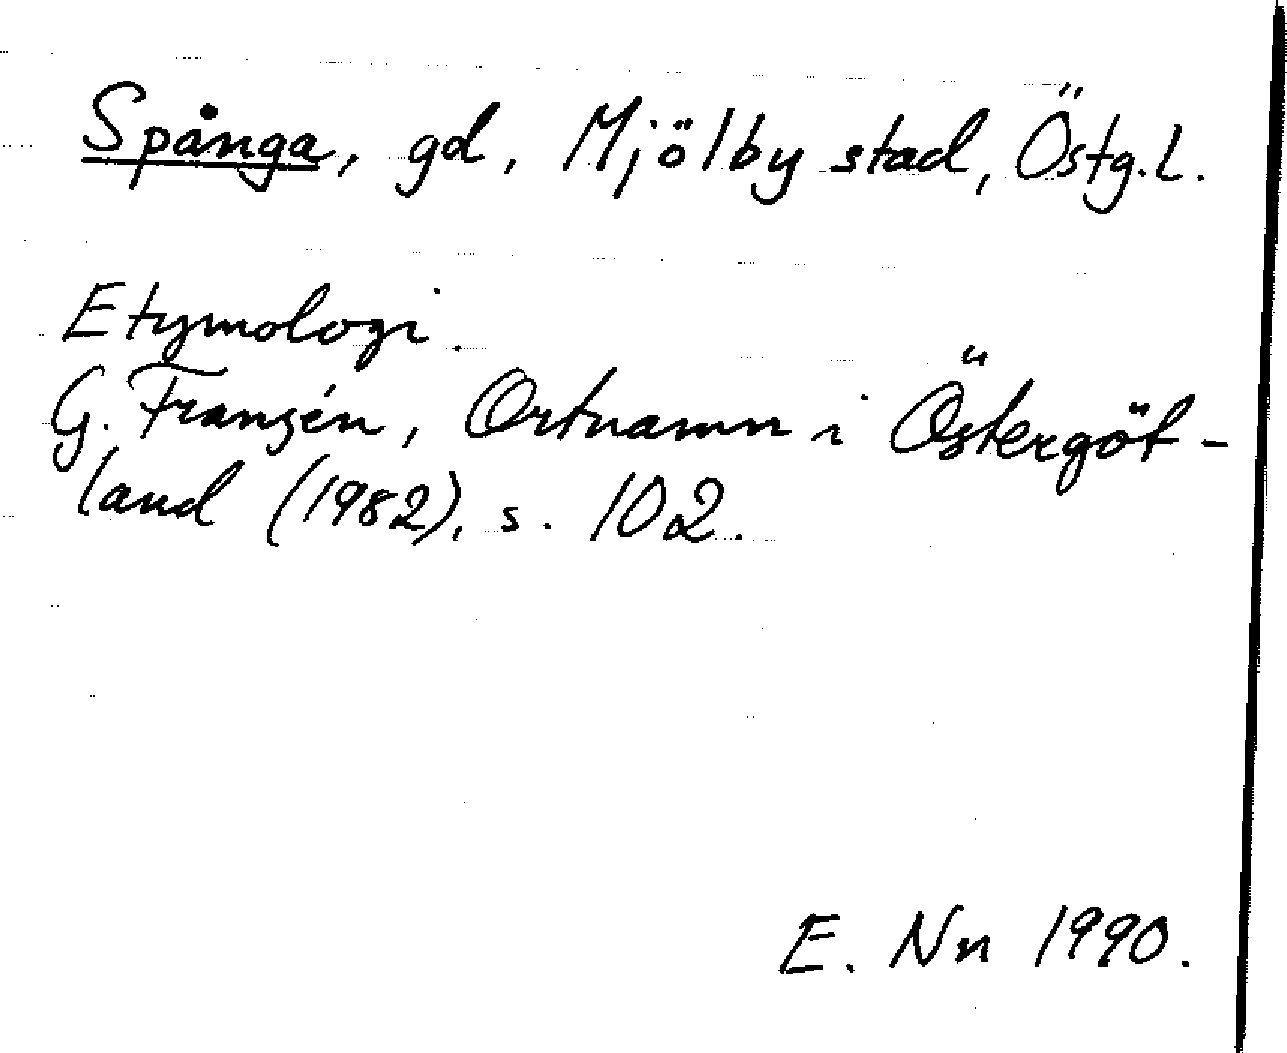 Spånga, gd, Mjölby stad, Östg.L.
Etymologi.
G. Franzén, Ortnamn i Östergöt-
land (1982), s. 102.
E. Nn 1990.